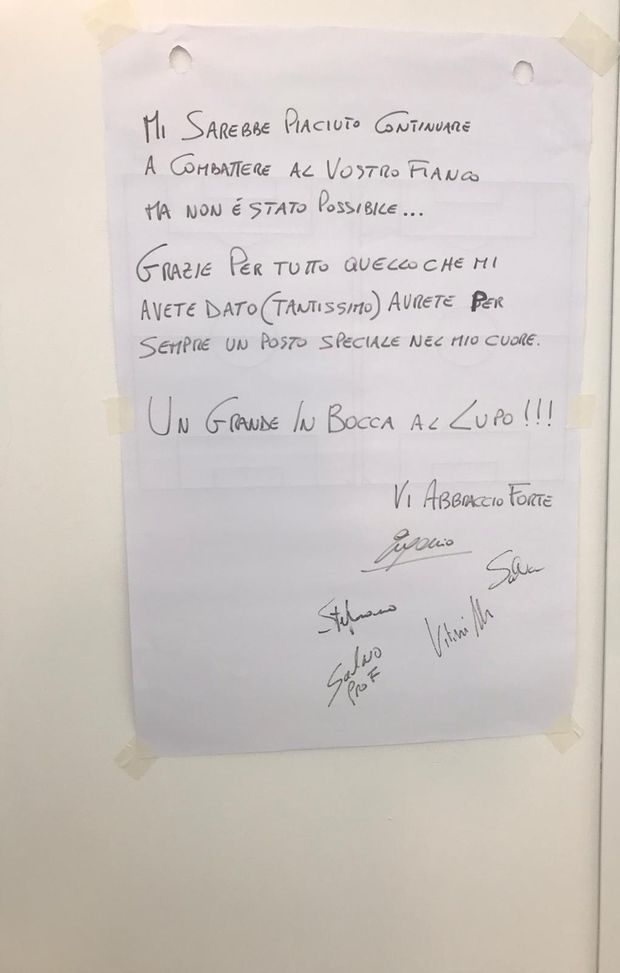 MI SAREBBE PIACIUTO CONTINUARE
A COMBATTERE AL VOSTRO FIANCO
MA NON É STATO POSSIBILE...
GRAZIE PER TUTTO QUELLO CHE MI
AVETE DATO (TANTISSIMO) AVRETE PER
SEMPRE UN POSTO SPECIALE NEL MIO CUORE.
UN GRANDE IN BOCCA AL LUPO!!!
VI ABBRACCIO FORTE
Eugenio
Salva
Stefano
Salvo
Prof